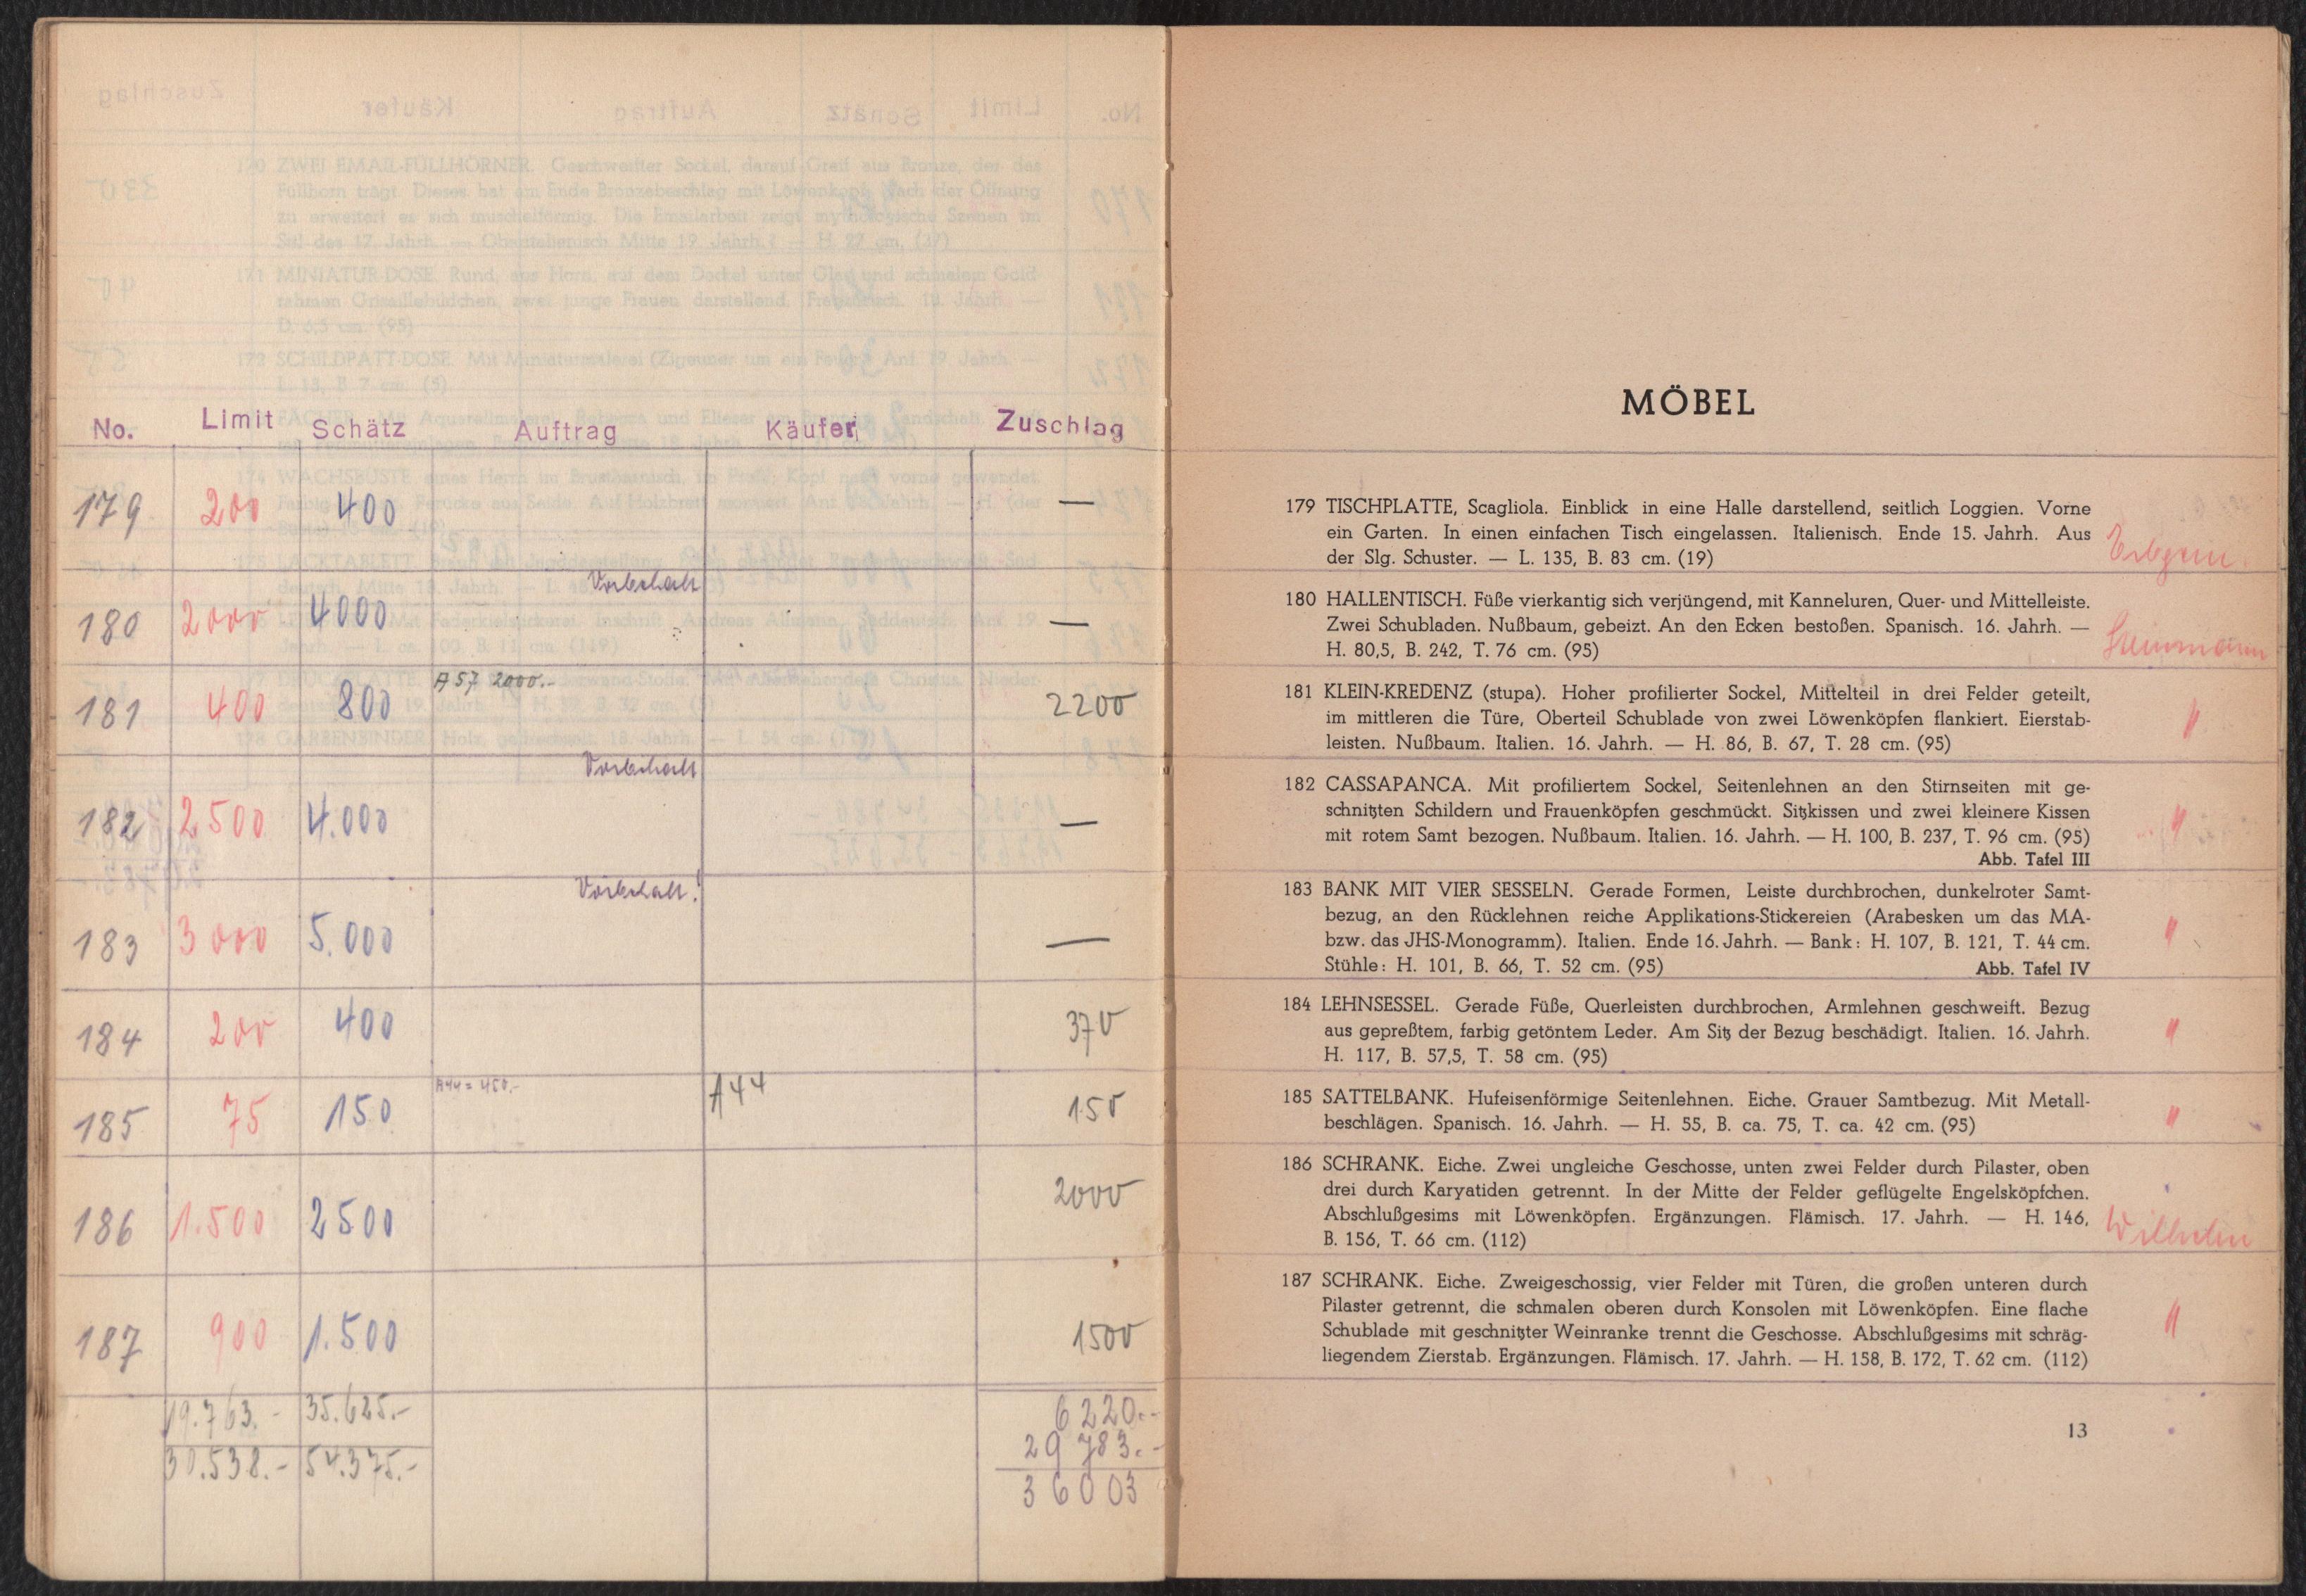 No. Limit Schätz Auftrag Käufer Zuschlag
179 200 400 —
Vorbehalt
180 2000 4000 —
A 57 2000.-
181 400 800 2200
Vorbehalt
182 2500 4.000 —
Vorbehalt!
183 3000 5.000 —
184 200 400 370
A44 = 450.- A44
185 75 150 150
186 1.500 2500 2000
187 900 1.500 1500
19.763.- 35.625.- 6220.-
29783.-
30.538.- 54.375.- 36003
MÖBEL
179 TISCHPLATTE, Scagliola. Einblick in eine Halle darstellend, seitlich Loggien. Vorne
ein Garten. In einen einfachen Tisch eingelassen. Italienisch. Ende 15. Jahrh. Aus
der Slg. Schuster. — L. 135, B. 83 cm. (19)
180 HALLENTISCH. Füße vierkantig sich verjüngend, mit Kanneluren, Quer- und Mittelleiste.
Zwei Schubladen. Nußbaum, gebeizt. An den Ecken bestoßen. Spanisch. 16. Jahrh. —
H. 80,5, B. 242, T. 76 cm. (95)
181 KLEIN-KREDENZ (stupa). Hoher profilierter Sockel, Mittelteil in drei Felder geteilt,
im mittleren die Türe, Oberteil Schublade von zwei Löwenköpfen flankiert. Eierstab-
leisten. Nußbaum. Italien. 16. Jahrh. — H. 86, B. 67, T. 28 cm. (95)
"
182 CASSAPANCA. Mit profiliertem Sockel, Seitenlehnen an den Stirnseiten mit ge-
schnitzten Schildern und Frauenköpfen geschmückt. Sitzkissen und zwei kleinere Kissen
mit rotem Samt bezogen. Nußbaum. Italien. 16. Jahrh. — H. 100, B. 237, T. 96 cm. (95)
Abb. Tafel III
"
183 BANK MIT VIER SESSELN. Gerade Formen, Leiste durchbrochen, dunkelroter Samt-
bezug, an den Rücklehnen reiche Applikations-Stickereien (Arabesken um das MA-
bzw. das JHS-Monogramm). Italien. Ende 16. Jahrh. — Bank: H. 107, B. 121, T. 44 cm.
Stühle: H. 101, B. 66, T. 52 cm. (95) Abb. Tafel IV
"
184 LEHNSESSEL. Gerade Füße, Querleisten durchbrochen, Armlehnen geschweift. Bezug
aus gepreßtem, farbig getöntem Leder. Am Sitz der Bezug beschädigt. Italien. 16. Jahrh.
H. 117, B. 57,5, T. 58 cm. (95)
"
185 SATTELBANK. Hufeisenförmige Seitenlehnen. Eiche. Grauer Samtbezug. Mit Metall-
beschlägen. Spanisch. 16. Jahrh. — H. 55, B. ca. 75, T. ca. 42 cm. (95)
"
186 SCHRANK. Eiche. Zwei ungleiche Geschosse, unten zwei Felder durch Pilaster, oben
drei durch Karyatiden getrennt. In der Mitte der Felder geflügelte Engelsköpfchen.
Abschlußgesims mit Löwenköpfen. Ergänzungen. Flämisch. 17. Jahrh. — H. 146,
B. 156, T. 66 cm. (112)
Wilhelm
187 SCHRANK. Eiche. Zweigeschossig, vier Felder mit Türen, die großen unteren durch
Pilaster getrennt, die schmalen oberen durch Konsolen mit Löwenköpfen. Eine flache
Schublade mit geschnitzter Weinranke trennt die Geschosse. Abschlußgesims mit schräg-
liegendem Zierstab. Ergänzungen. Flämisch. 17. Jahrh. — H. 158, B. 172, T. 62 cm. (112)
"
13